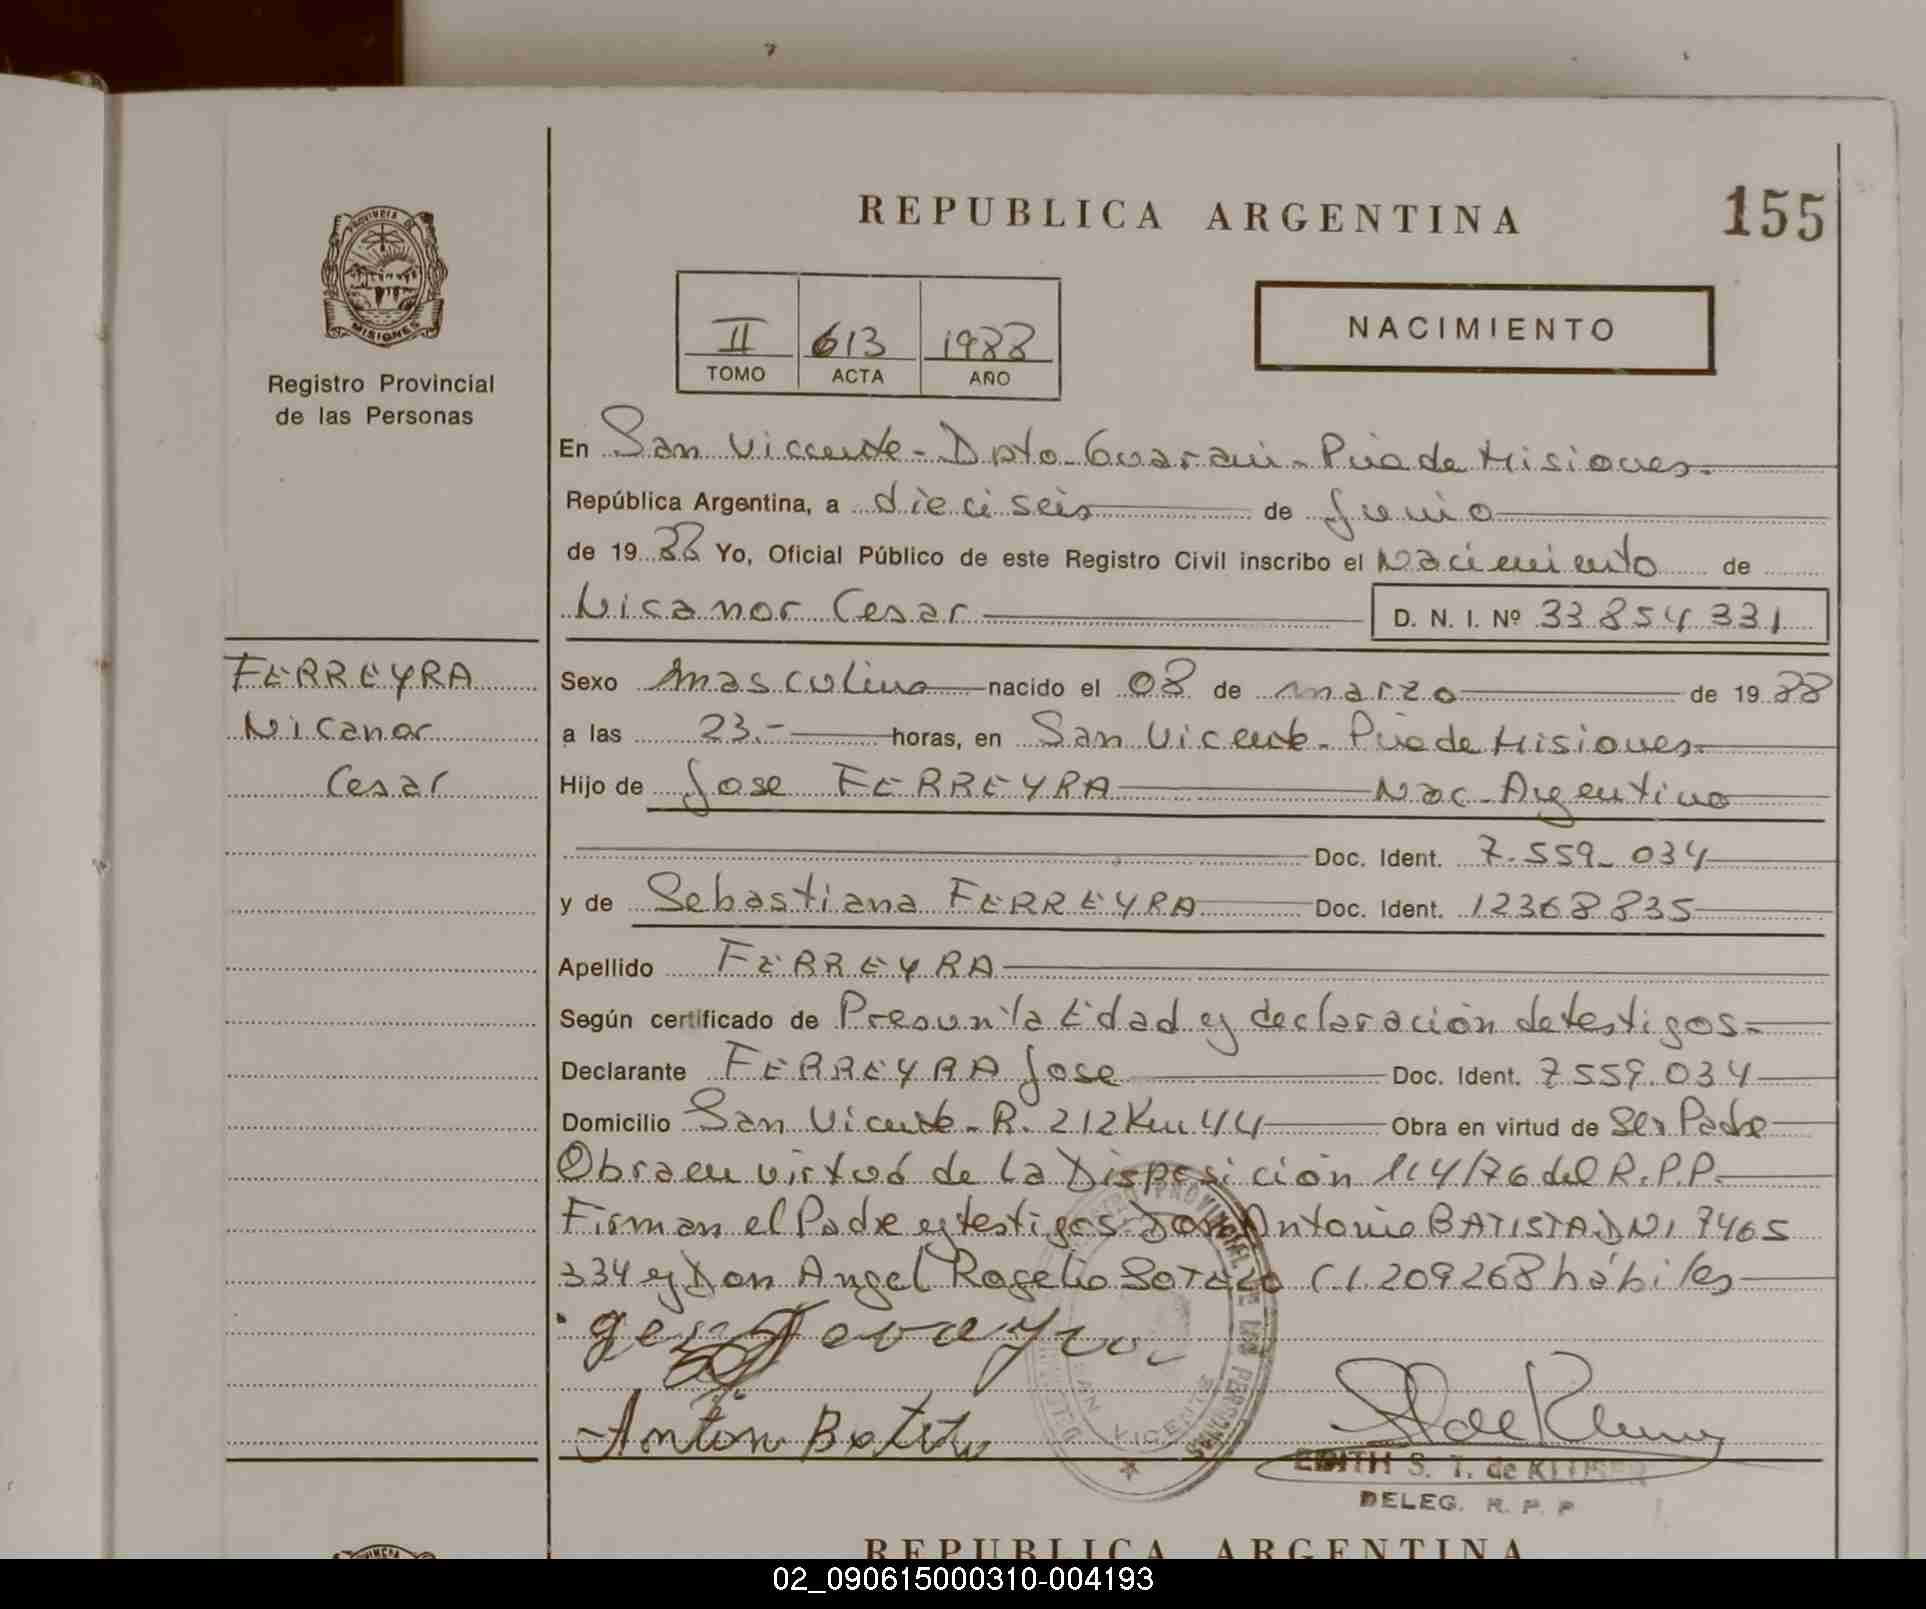 REPUBLICA ARGENTINA
155
PROVINCIA DE
MISIONES
Registro Provincial
de las Personas
II 613 1988
TOMO ACTA AÑO
NACIMIENTO
En San Vicente - Dpto Guarani - Pcia de Misiones.
República Argentina, a dieciseis de Junio
de 19 88 Yo, Oficial Público de este Registro Civil inscribo el Nacimiento de
Nicanor Cesar D. N. I. Nº 33.854.331
FERREYRA
Nicanor
Cesar
Sexo Masculino nacido el 08 de marzo de 19 88
a las 23.- horas, en San Vicente - Pcia de Misiones.
Hijo de Jose FERREYRA Nac. Argentino
Doc. Ident. 7.559.034
y de Sebastiana FERREYRA Doc. Ident. 12368835
Apellido FERREYRA
Según certificado de Presunta Edad y declaración de testigos.
Declarante FERREYRA Jose Doc. Ident. 7559.034
Domicilio San Vicente - R. 212 Km 44 Obra en virtud de Ser Padre
Obra en virtud de la Disposición 114/76 del R.P.P.
Firman el Padre y testigos Don Antonio BATISTA DNI 7465
334 y Don Angel Rogelio SOTELO C.I. 209268 hábiles
REGISTRO PROVINCIAL DE LAS PERSONAS
SAN VICENTE
EDITH S. T. de KLUSER
DELEG. R. P. P
REPUBLICA ARGENTINA
02_090615000310-004193